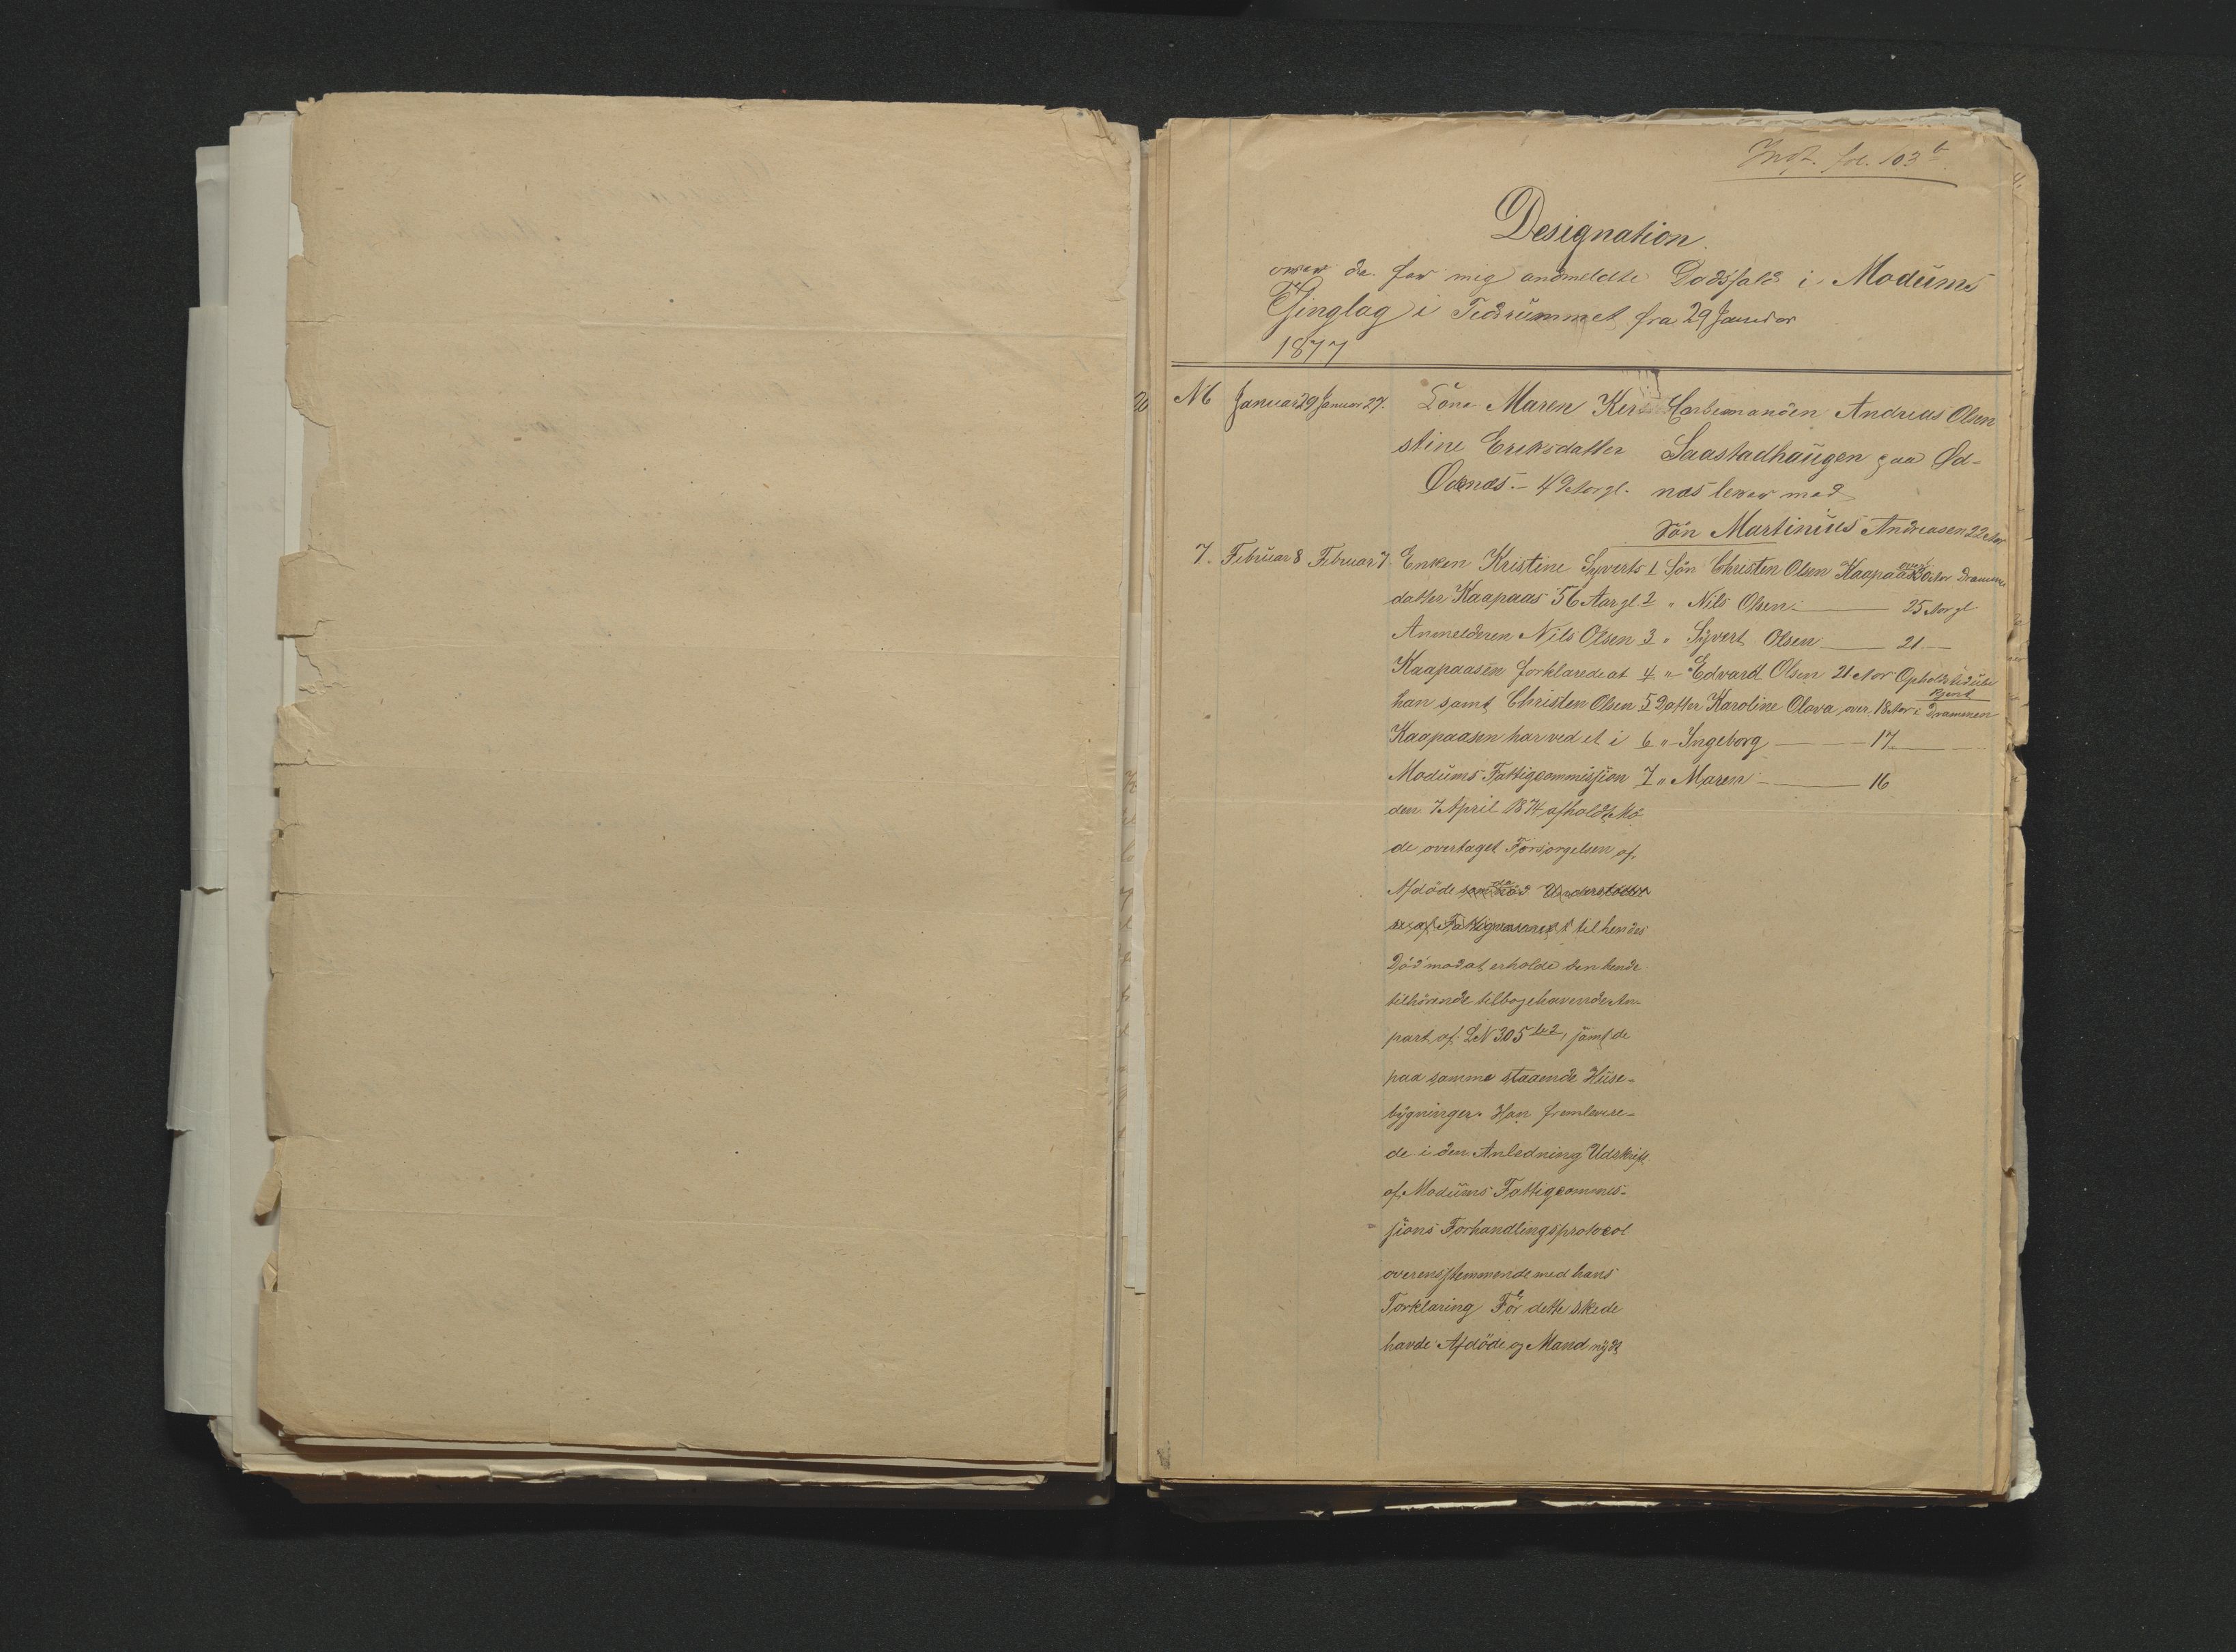 fol. 103 b
Designation
over de for mig anmeldte Dødsfald i Modums
Thinglag i Tidrummet fra 29 Januar
1877
N 6 Januar 29 Januar 27. Kone Maren Ker
stine Eriksdatter
Ødenæs. 49 Aar gl.
Andreas Olsen
Saastadhaugen paa Ød-
næs lever med
Søn Martinius Andreasen 22 Aar
7. Februar 8 Februar 7. Enken Kristine Syverts
datter Kaapaas 56 Aar gl.
Anmelderen Nils Olsen
Kaapaasen forklarede at
han samt Christen Olsen
Kaapaasen har ved et i
Modums Fattigcommission
den 7 April 1874 afholdt Mø
de overtaget Forsørgelsen af
Afdøde til hendes
Død mod at erholde den hende
tilhørende tilbagehavende An-
part af LN 305 , jämt de
paa samme staaende Huse-
bygninger. Han fremlevere-
de i den Anledning Udskrift
af Modums Fattigcommis-
sions Forhandlingsprotocol
overensstemmende med hans
Forklaring Før dette skede
havde Afdøde og Mand nydt
1 Søn Christen Olsen Kaapaas over 30 Aar Drammen
2 " Nils Olsen 25 Aar gl
3 " Syvert Olsen 21
4 " Edvard Olsen 21 Aar Opholdstid ube
kjent
5 Datter Karoline Olava over 18 Aar i Drammen
6 " Ingeborg 17
7 " Maren 16